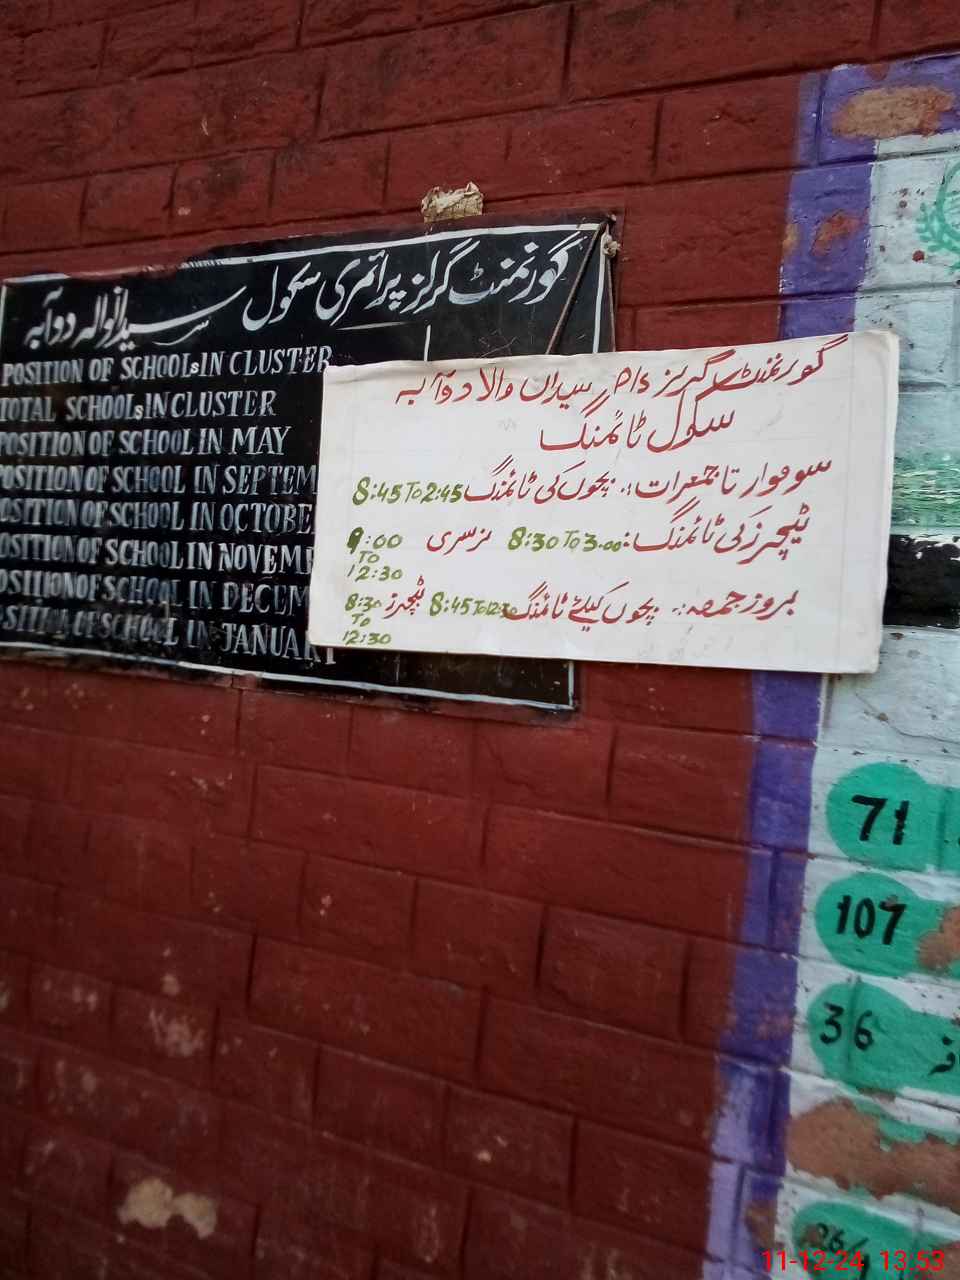 گورنمنٹ گرلز پرائمری سکول سیدانوالہ دوآبہ
POSITION OF SCHOOLs IN CLUSTER
TOTAL SCHOOLs IN CLUSTER
POSITION OF SCHOOL IN MAY
POSITION OF SCHOOL IN SEPTEM
POSITION OF SCHOOL IN OCTOBE
OSITION OF SCHOOL IN NOVEM
OSITION OF SCHOOL IN DECEM
OSITION OF SCHOOL IN JANUARY
گورنمنٹ گرلز P/S سیداں والا دوآبہ
سکول ٹائمنگ
سوموار تا جمعرات:۔ بچوں کی ٹائمنگ 8:45 To 2:45
ٹیچرز کی ٹائمنگ:۔ 8:30 To 3.00 نرسری 9:00 To 12:30
بروز جمعہ:۔ بچوں کیلئے ٹائمنگ 8:45 To 12:30 ٹیچرز 8:30 To 12:30
71
107
36
11-12-24 13.53